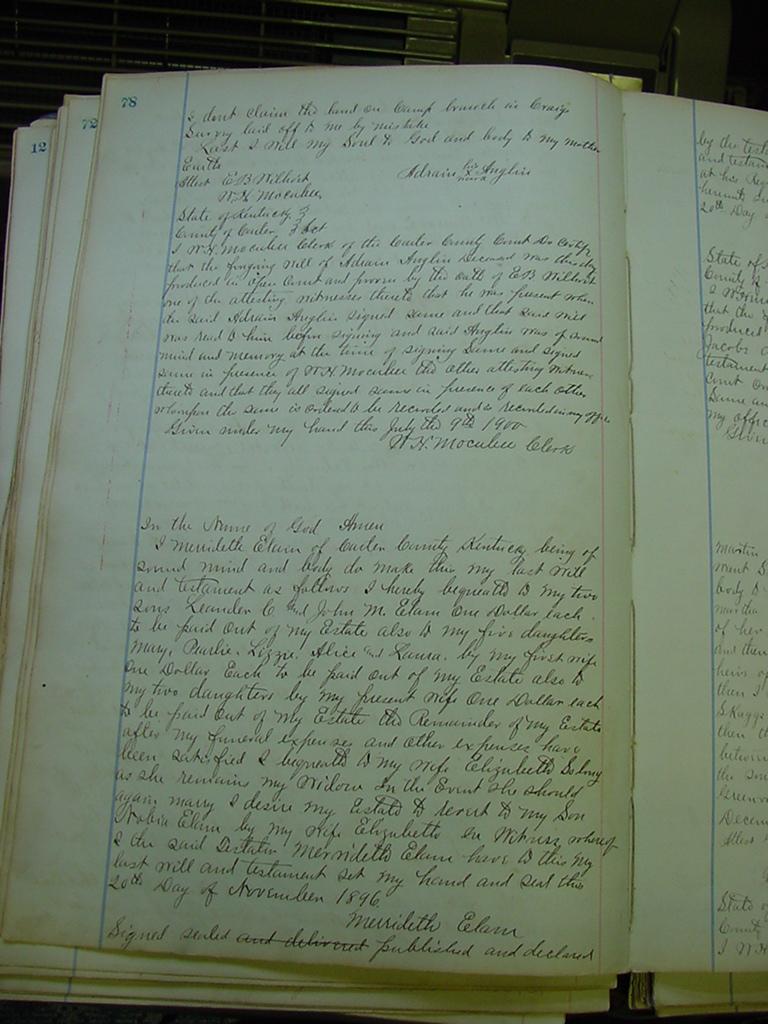 78
I dont claim the land on Camp branch in Craigs
Survey laid off to me by mistake
Last I will my Soul to God and body to my mother
Earth
Adrain his x mark Anglin
Attest E B Wilhoit
W. H. Mocabee
State of Kentucky }
County of Carter } Sct
I W. H. Mocabee Clerk of the Carter County Court Do Certify
that the forgoing will of Adrain Anglin Deceased was this day
produced in open Court and proven by the oath of E B Wilhoit
one of the attesting witnesses thereto that he was present when
the said Adrain Anglin signed same and that said will
was read to him before signing and said Anglin was of sound
mind and memory at the time of signing Same and signed
same in presence of W H Mocabee the other attesting witness
thereto and that they all signed same in presence of each other
whereupon the same is ordered to be recorded and is recorded in my office
Given under my hand this July the 9th 1900
W. H. Mocabee Clerk
In the Name of God Amen
I Merrideth Elam of Carter County Kentucky being of
sound mind and body do make this my last will
and testament as follows I hereby bequeath to my two
sons Leander C and John M. Elam One Dollar each
to be paid out of my Estate also to my five daughters
Mary, Pearlie, Lizzie, Alice and Laura by my first wife
One Dollar Each to be paid out of my Estate also to
my two daughters by my present wife One Dollar each
to be paid out of my Estate the Remainder of my Estate
after my funeral expenses and other expenses have
been satisfied I bequeath to my wife Elizabeth So long
as she remains my Widow In the Event she should
again marry I desire my Estate to revert to my Son
Robin Elam by my wife Elizabeth In Witness whereof
I the said Testator Merrideth Elam have to this my
last will and testament set my hand and seal this
20th Day of November 1896
Merrideth Elam
Signed sealed and delivered published and declared
72
12
by the test
and testam
at his Req
hereunto
20th Day
State of
County
that the
produced
Jacobs
testament
Court
Same an
my office
Given
martin
body
of her
and then
heirs of
then I
Skaggs
then
between
the so
Green
Decem
Attest
State o
County
I W H